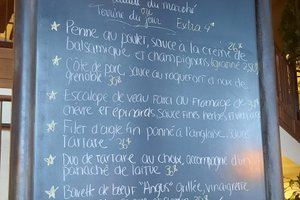 Salade du marché
ou
Terrine du jour Extra 4$
Penne au poulet, sauce à la crème de
balsamique et champignons (grignon 2,50$) 26$
Côte de porc, sauce au roquefort et noix de
grenoble 36$
Escalope de veau farci au fromage de
chèvre et épinards, sauce fines herbes et
Filet d'aiglefin panné à l'anglaise, sauce
tartare 36$
Duo de tartare au choix, accompagné d'un
panaché de laitue
Bavette de boeuf "Angus" grillée, vinaigrette